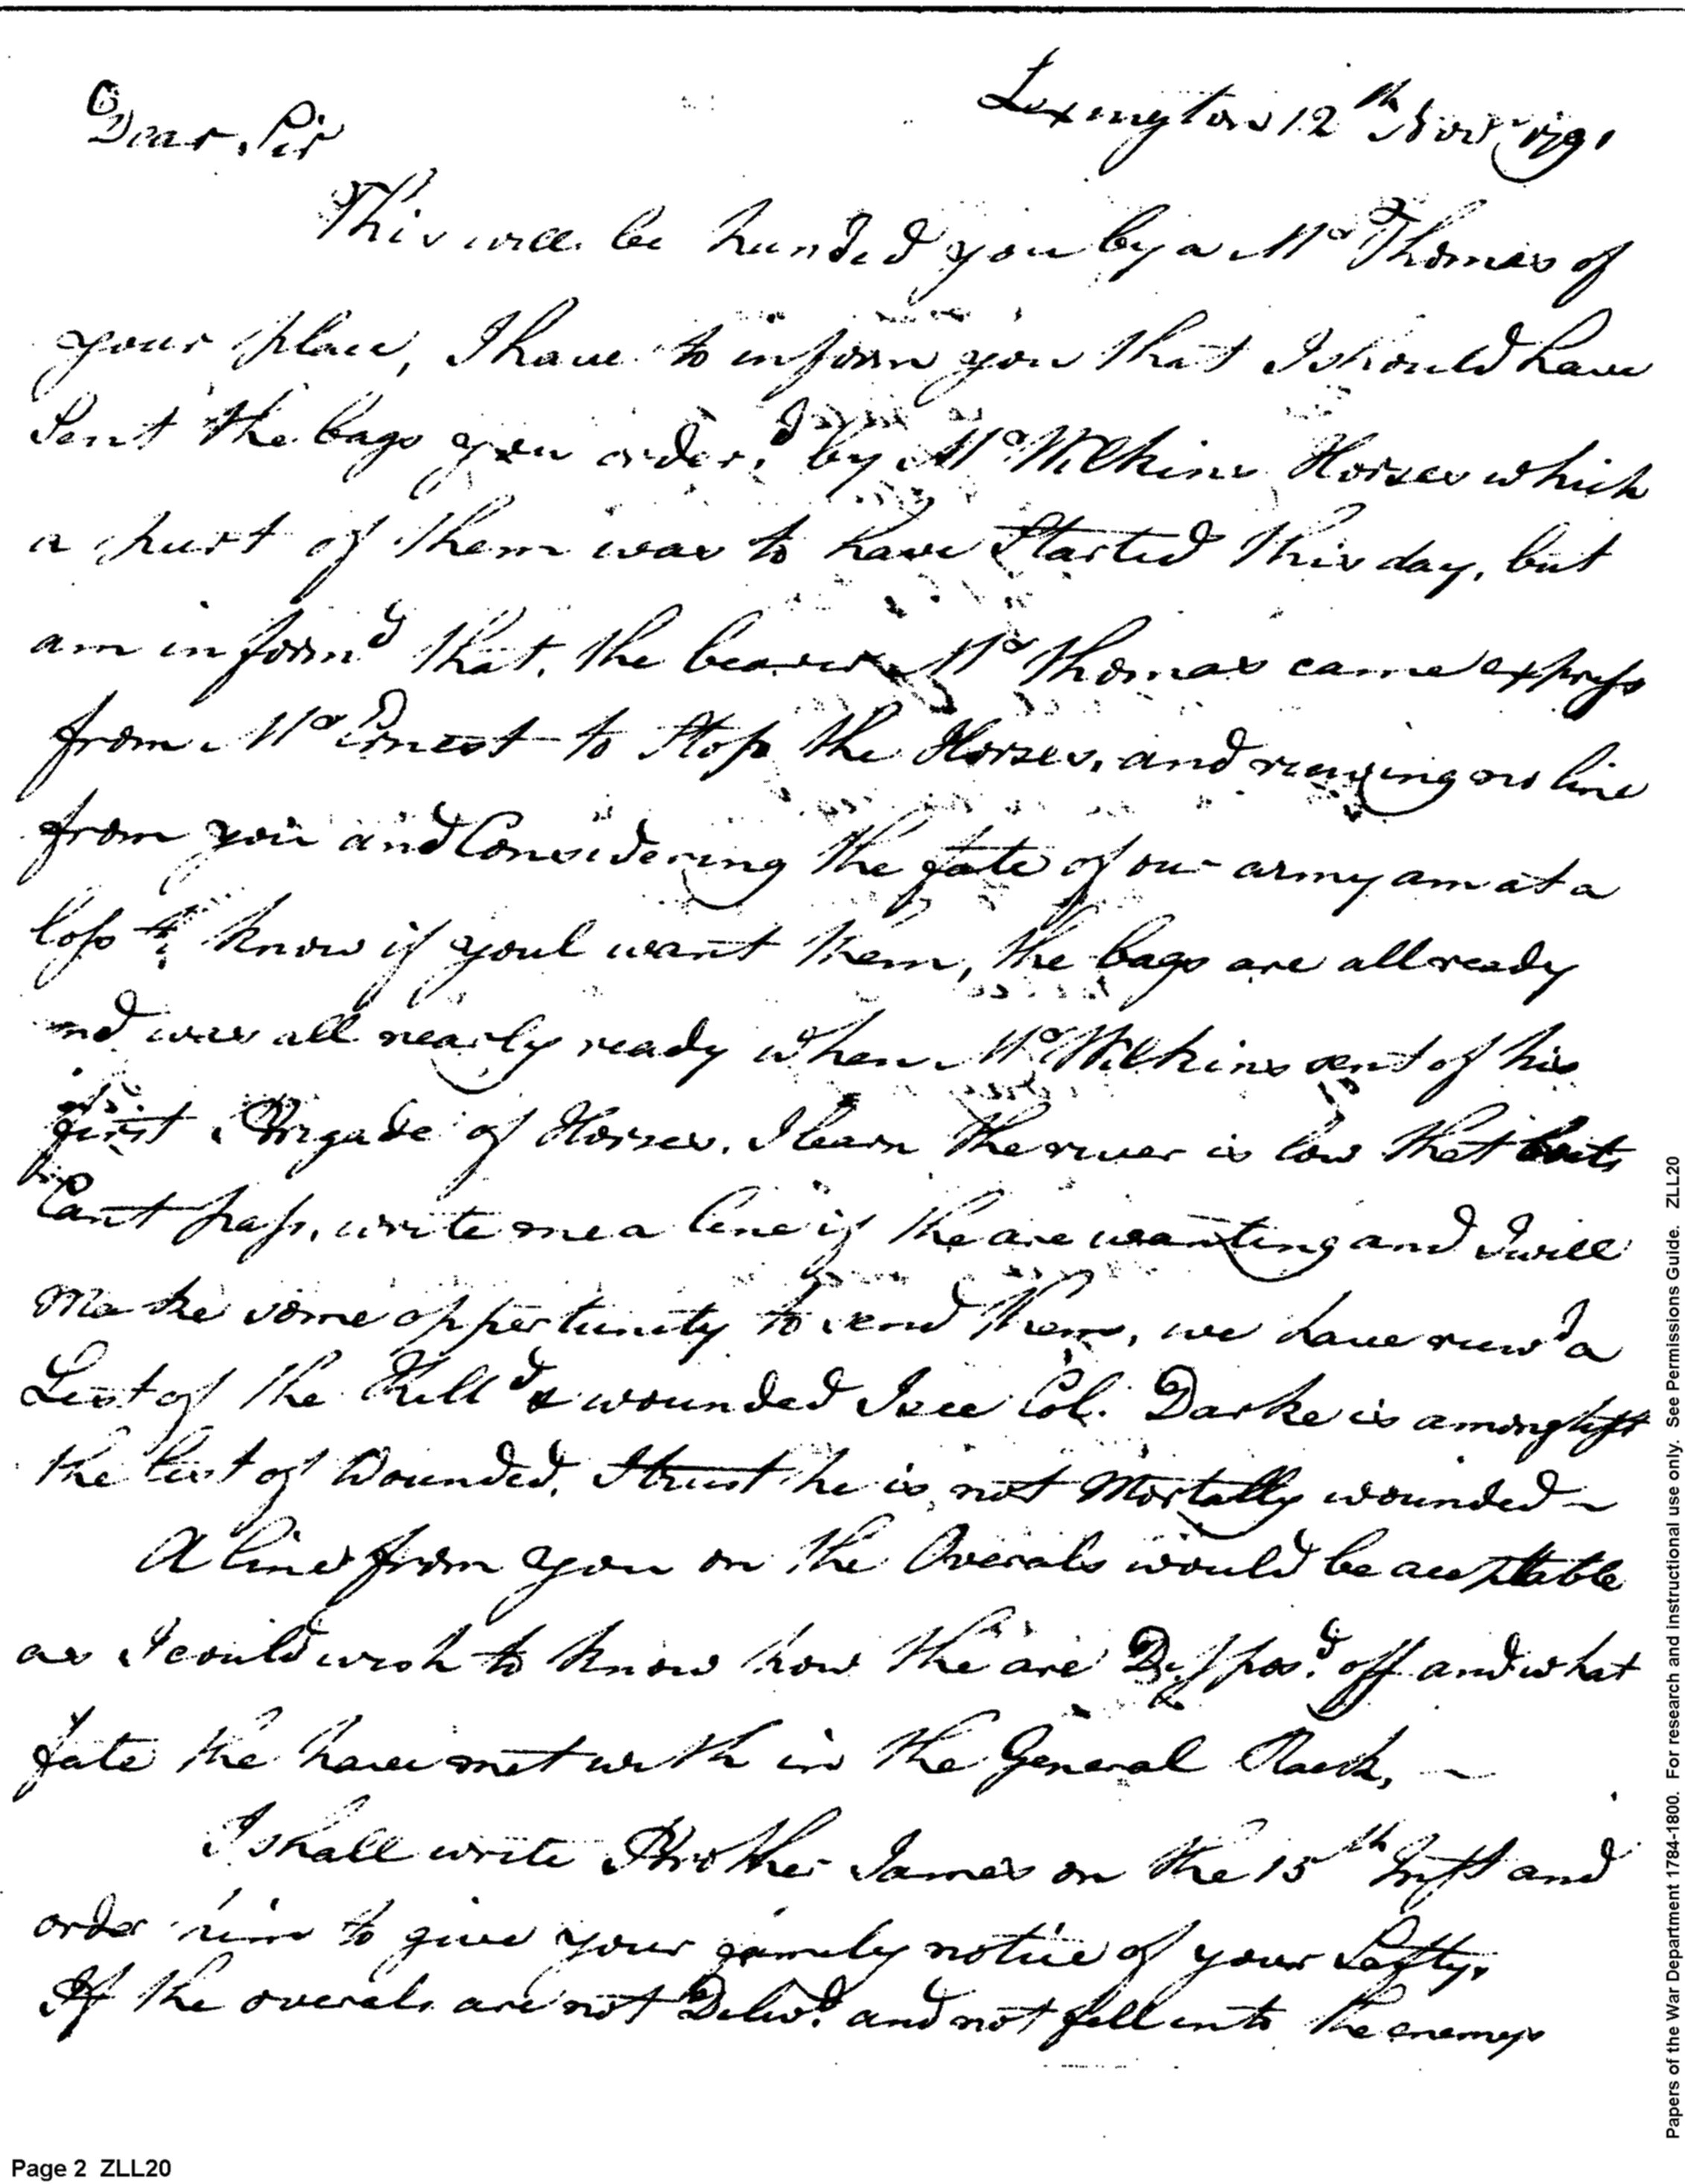 Lexington 12th Novr 1791
Dear Sir
This will be handed you by a Mr Thomas of
your place, I have to inform you that I should have
Sent the bags you order'd by Mr Wilkins Horses which
a part of them was to have Started this day, but
am inform'd that, the bearer Mr Thomas came express
from Mr Ernest to Stop the Horses, and receiving no line
from you and Considering the fate of our army am at a
loss to know if youl want them, the bags are all ready
and was all nearly ready when Mr Wilkins sent of his
first Brigade of Horses. I learn the river is low that boats
Cant pass, write me a line if the are wanting and I will
Make some oppertunity to send them, we have recvd a
List of the Killd & wounded I see Col. Darke is among
the list of Wounded, I trust he is not Mortally wounded ~
A line from you on the Overals would be acceptable
as I could wish to know how the are Disspos.d off and what
fate the have met with in the General ~
I shall write Brother James on the 15th Inst and
order him to give your family notice of your Safty.
If the overals are not Delivd. and not fell into the enemys
Page 2 ZLL20
Papers of the War Department 1784-1800. For research and instructional use only. See Permissions Guide. ZLL20